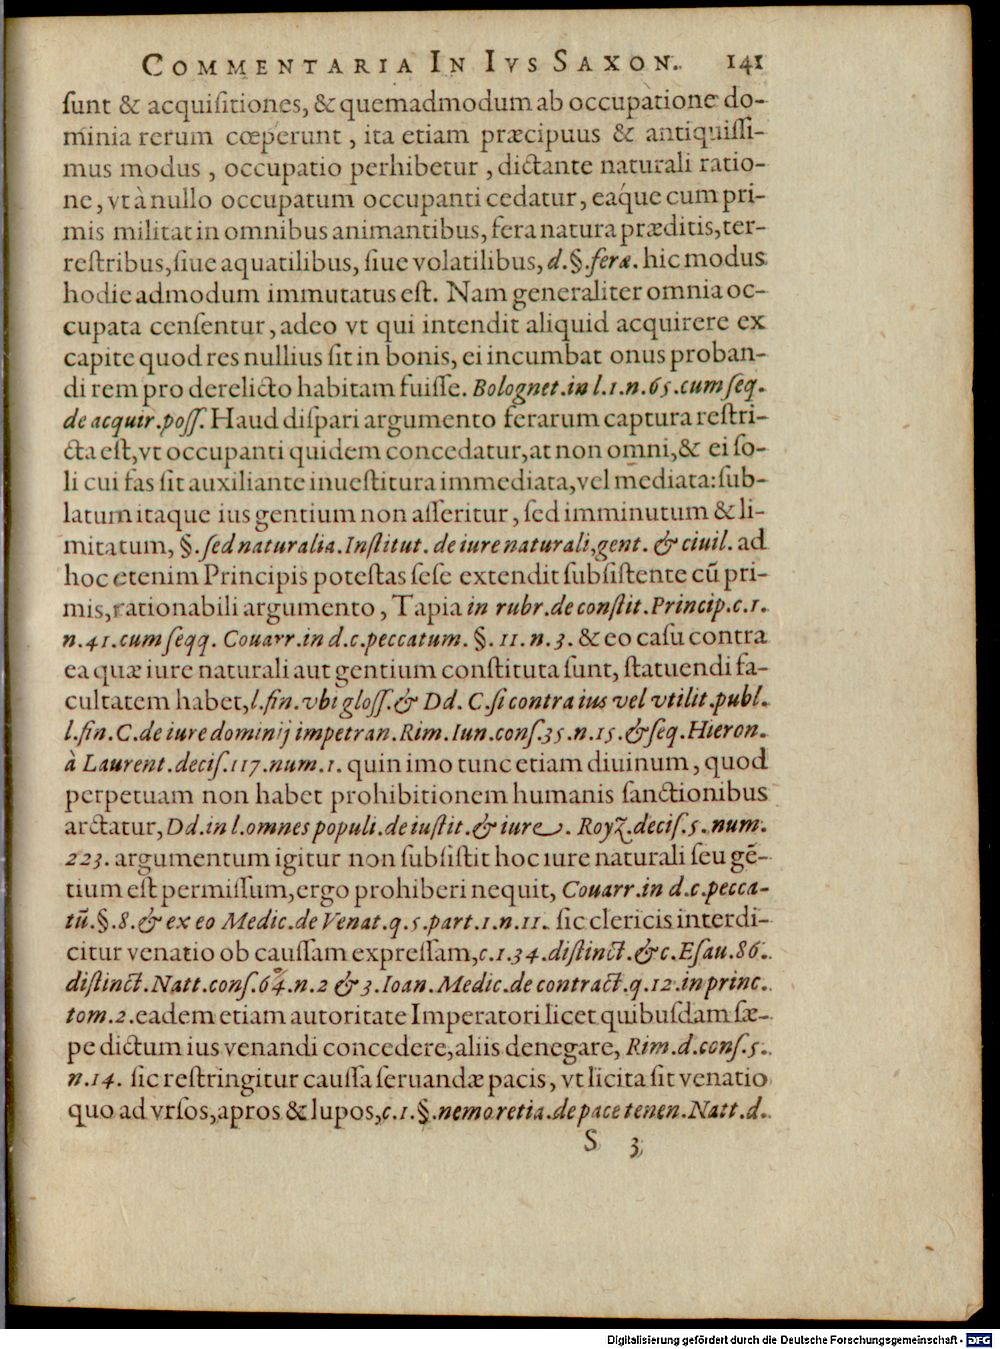 COMMENTARIA IN IVS SAXON. 141
ſunt & acquiſitiones, & quemadmodum ab occupatione do-
minia rerum cœperunt, ita etiam præcipuus & antiquiſſi-
mus modus, occupatio perhibetur, dictante naturali ratio-
ne, vt à nullo occupatum occupanti cedatur, eáque cum pri-
mis militat in omnibus animantibus, fera natura præditis, ter-
reſtribus, ſiue aquatilibus, ſiue volatilibus, d. §. feræ. hic modus
hodie admodum immutatus eſt. Nam generaliter omnia oc-
cupata cenſentur, adeo vt qui intendit aliquid acquirere ex
capite quod res nullius ſit in bonis, ei incumbat onus proban-
di rem pro derelicto habitam fuiſſe. Bolognet. in l. 1. n. 65. cum ſeq.
de acquir. poſſ. Haud diſpari argumento ferarum captura reſtri-
cta eſt, vt occupanti quidem concedatur, at non omni, & ei ſo-
li cui fas ſit auxiliante inueſtitura immediata, vel mediata: ſub-
latum itaque ius gentium non aſſeritur, ſed imminutum & li-
mitatum, §. ſed naturalia. Inſtitut. de iure naturali, gent. & ciuil. ad
hoc etenim Principis poteſtas ſeſe extendit ſubſiſtente cū pri-
mis, rationabili argumento, Tapia in rubr. de conſtit. Princip. c. 1.
n. 41. cum ſeqq. Couarr. in d. c. peccatum. §. 11. n. 3. & eo caſu contra
ea quæ iure naturali aut gentium conſtituta ſunt, ſtatuendi fa-
cultatem habet, l. fin. vbi gloſſ. & Dd. C. ſi contra ius vel vtilit. publ.
l. fin. C. de iure dominij impetran. Rim. Iun. conſ. 35. n. 15. & ſeq. Hieron.
à Laurent. deciſ. 117. num. 1. quin imo tunc etiam diuinum, quod
perpetuam non habet prohibitionem humanis ſanctionibus
arctatur, Dd. in l. omnes populi. de iuſtit. & iure. Royz. deciſ. 5. num.
223. argumentum igitur non ſubſiſtit hoc iure naturali ſeu gē-
tium eſt permiſſum, ergo prohiberi nequit, Couarr. in d. c. pecca-
tū. §. 8. & ex eo Medic. de Venat. q. 5. part. 1. n. 11. ſic clericis interdi-
citur venatio ob cauſſam expreſſam, c. 1. 34. diſtinct. & c. Eſau. 86.
diſtinct. Natt. conſ. 64. n. 2 & 3. Ioan. Medic. de contract. q. 12. in princ.
tom. 2. eadem etiam autoritate Imperatori licet quibuſdam ſæ-
pe dictum ius venandi concedere, aliis denegare, Rim. d. conſ. 5.
n. 14. ſic reſtringitur cauſſa ſeruandæ pacis, vt licita ſit venatio
quo ad vrſos, apros & lupos, c. 1. §. nemo retia. de pace tenen. Natt. d.
S 3
Digitalisierung gefördert durch die Deutsche Forschungsgemeinschaft - DFG